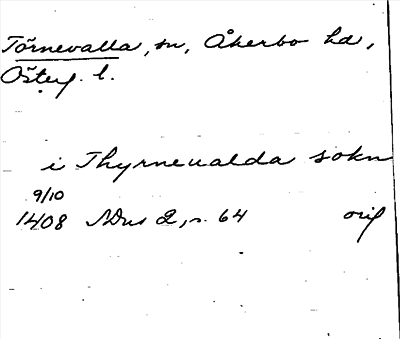 Törnevalla, sn, Åkerbo hd,
Österg. l.
i Thyrneualda sokn
9/10
1408 NDus 2, s. 64 orig